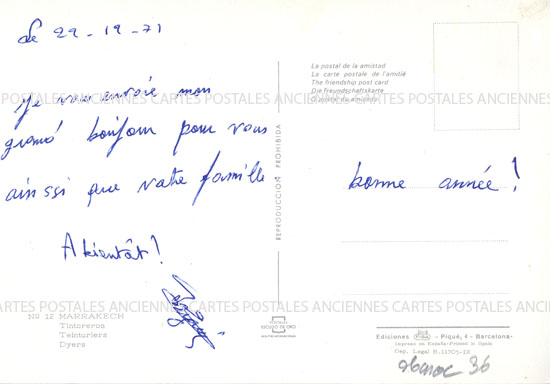 Le 29-12-71
Je vous envoie mon
grand bonjour pour vous
ainssi que votre famille
A bientôt !
bonne année !
La postal de la amistad
La carte postale de l'amitié
The friendship post card
Die Freundschaftskarte
O postal du amizade
CARTES POSTALES ANCIENNES CARTES POSTALES ANCIENNES CARTES POSTALES ANCIENNES
REPRODUCCION PROHIBIDA
CARTES POSTALES ANCIENNES CARTES POSTALES ANCIENNES CARTES POSTALES
Nº 12 MARRAKECH
Tintoreros
Teinturiers
Dyers
POSTALES
ESCUDO DE ORO
Ediciones - Piqué, 4 - Barcelona-
Impreso en España-Printed in Spain
Dep. Legal B.11705-IX
Maroc 36